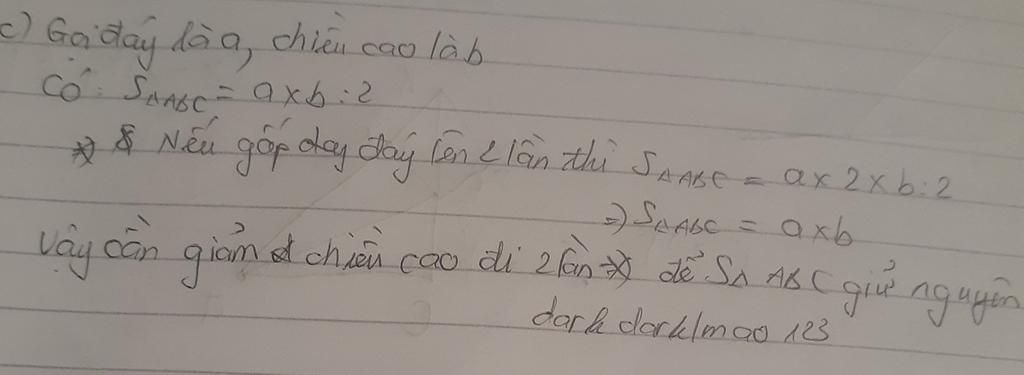 c) Gọi đáy là a, chiều cao là b
Có: S△ABC = a x b : 2
Nếu gấp đáy lên 2 lần thì S△ABC = a x 2 x b : 2
=> S△ABC = a x b
Vậy cần giảm chiều cao đi 2 lần để S△ABC giữ nguyên
dark darklmao 123